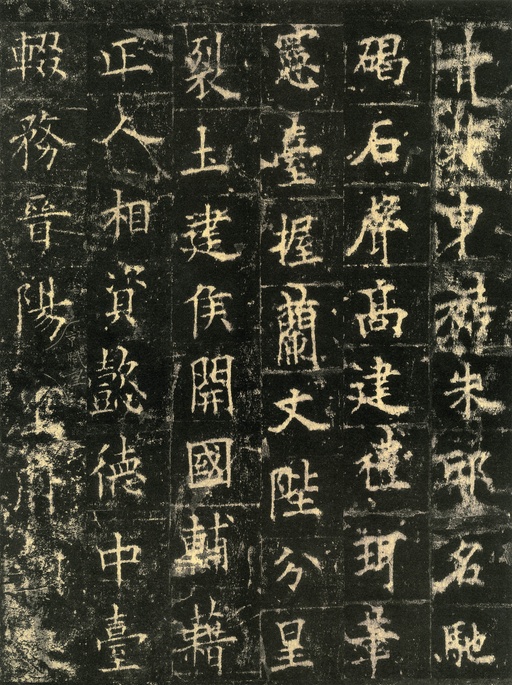 朱邸名馳
碣石聲高建禮珥筆
憲臺握蘭文陛分星
裂土建侯開國輔藉
正人相資懿德中臺
輟務晉陽